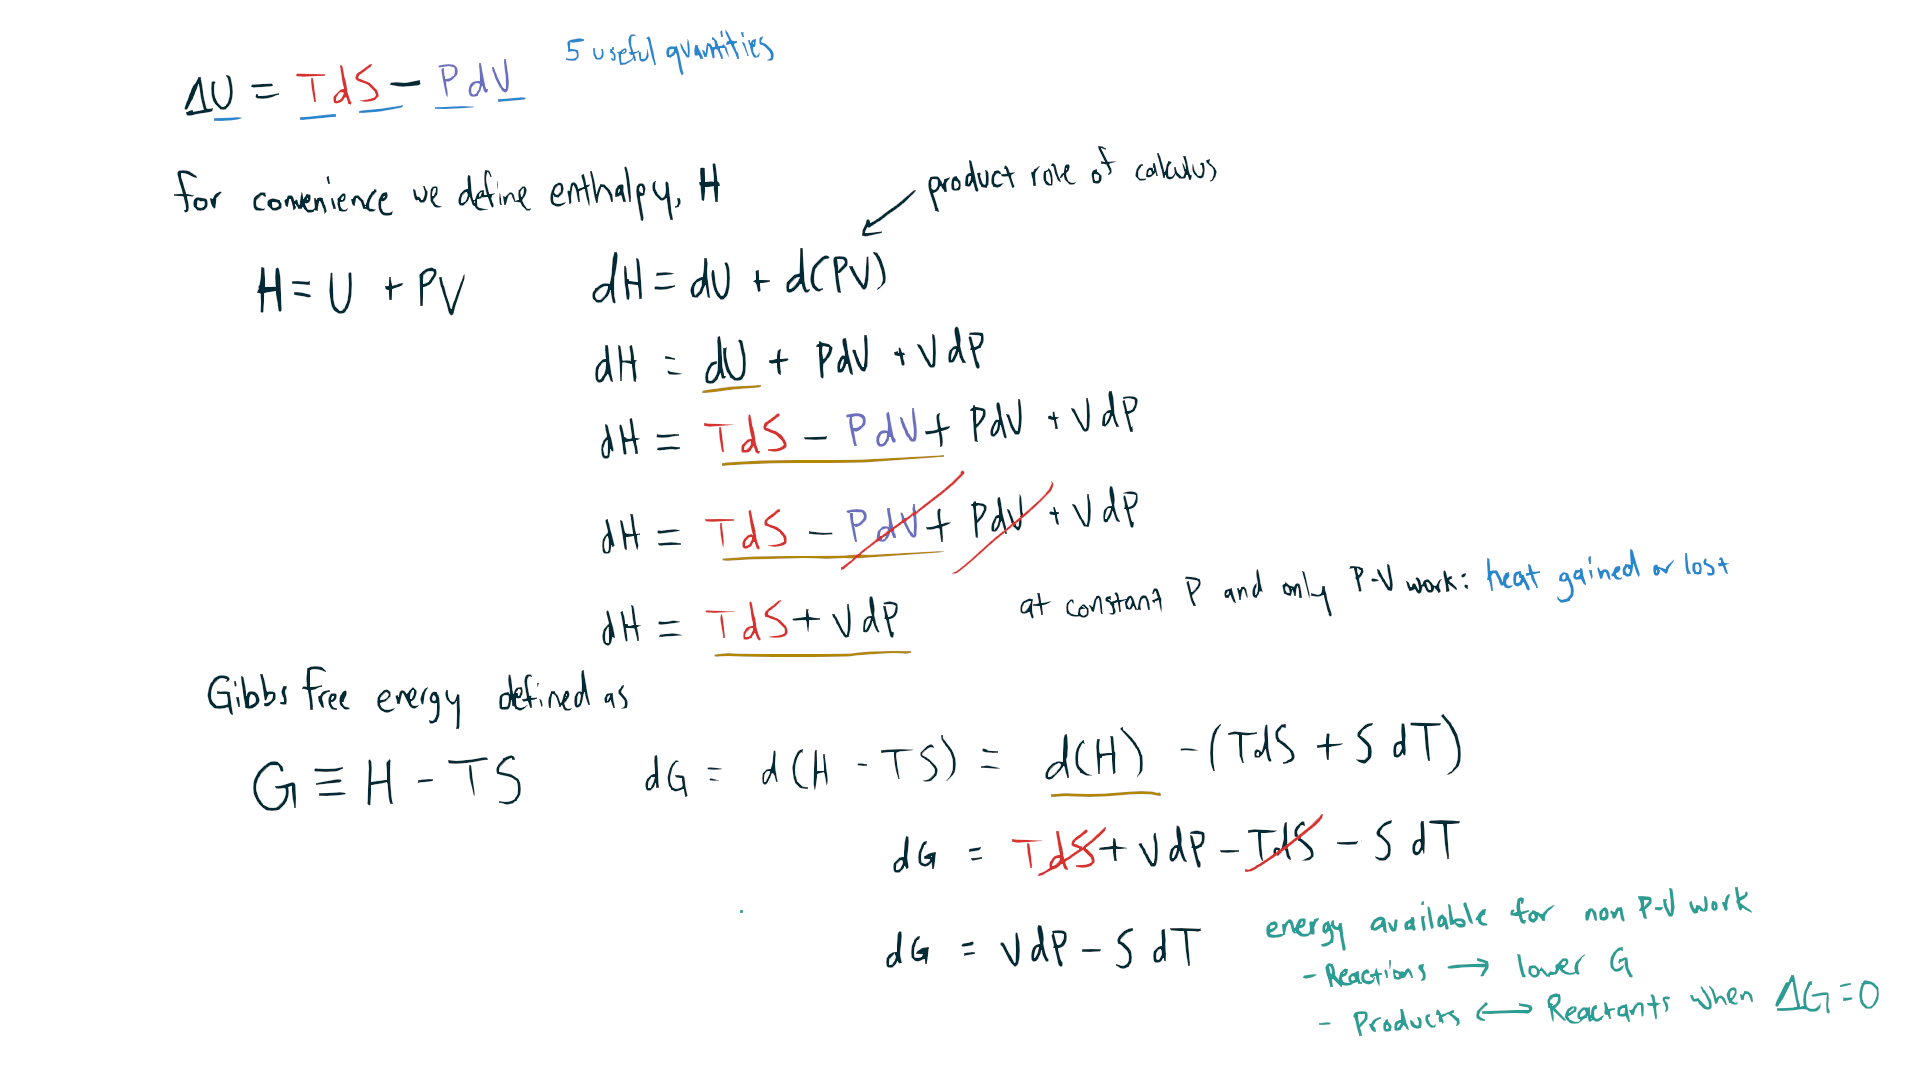 ΔU = TdS - PdV 5 useful quantities
for convenience we define enthalpy, H
product role of calculus
H = U + PV dH = dU + d(PV)
dH = dU + PdV + VdP
dH = TdS - PdV + PdV + VdP
dH = TdS - PdV + PdV + VdP
dH = TdS + VdP at constant P and only P-V work: heat gained or lost
Gibbs free energy defined as
G ≡ H - TS dG = d(H - TS) = d(H) - (TdS + S dT)
dG = TdS + VdP - TdS - S dT
dG = VdP - S dT energy available for non P-V work
- Reactions → lower G
- Products ⟷ Reactants when ΔG = 0